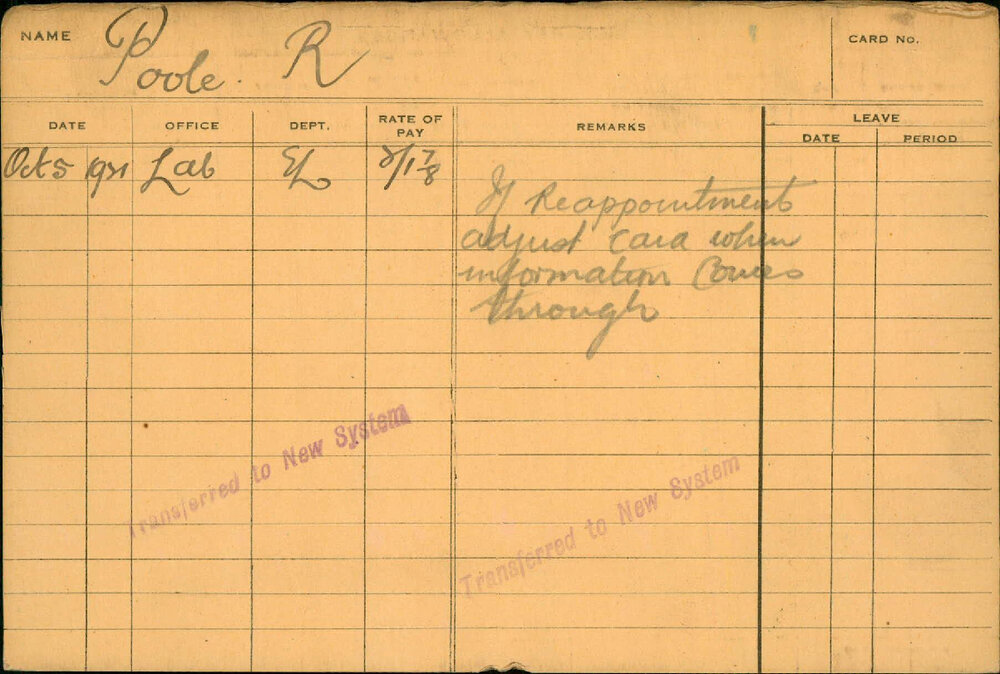 NAME Poole. R CARD No.
DATE OFFICE DEPT. RATE OF PAY REMARKS LEAVE
DATE PERIOD
Oct 5 1921 Lab EL
If Reappointment
adjust card when
information Comes
through
Transferred to New System
Transferred to New System